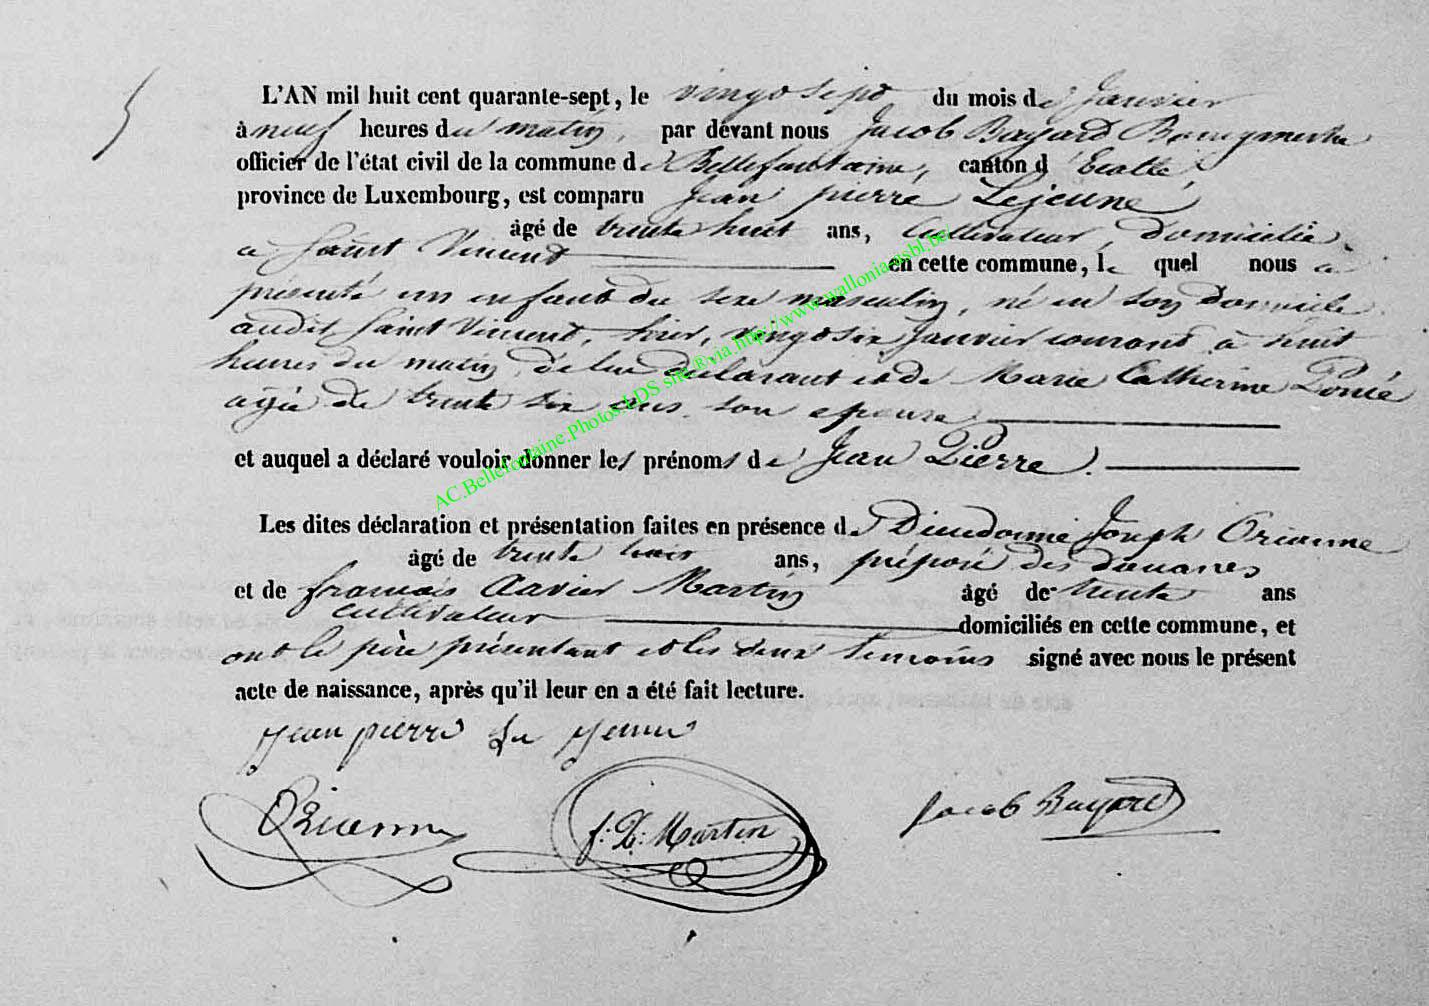 5
L'AN mil huit cent quarante-sept, le vingt sept du mois de Janvier
à neuf heures du matin, par devant nous Jacob Bayard Bourgmestre
officier de l'état civil de la commune de Bellefontaine, canton d'Etalle,
province de Luxembourg, est comparu Jean pierre Lejeune,
âgé de trente huit ans, Cultivateur, domicilié
a Saint Vincent en cette commune, le quel nous a
présenté un enfant du sexe masculin, né en son domicile
audit Saint Vincent, hier, vingt six Janvier courant, à huit
heures du matin, de lui déclarant et de Marie Catherine Poncé
agée de trente six ans, son epouse
et auquel a déclaré vouloir donner les prénoms de Jean Pierre.
Les dites déclaration et présentation faites en présence de Dieudonné Joseph Orianne
âgé de trente huit ans, préposé des douanes
et de françois Xavier Martin âgé de trente ans
cultivateur domiciliés en cette commune, et
ont le père présentant et les deux temoins signé avec nous le présent
acte de naissance, après qu'il leur en a été fait lecture.
Jean pierre Le Jeune
Orianne f: X: Martin Jacob Bayard
AC.Bellefontaine.Photos.LDS site.®via.http://www.wallonia.asbl.be/